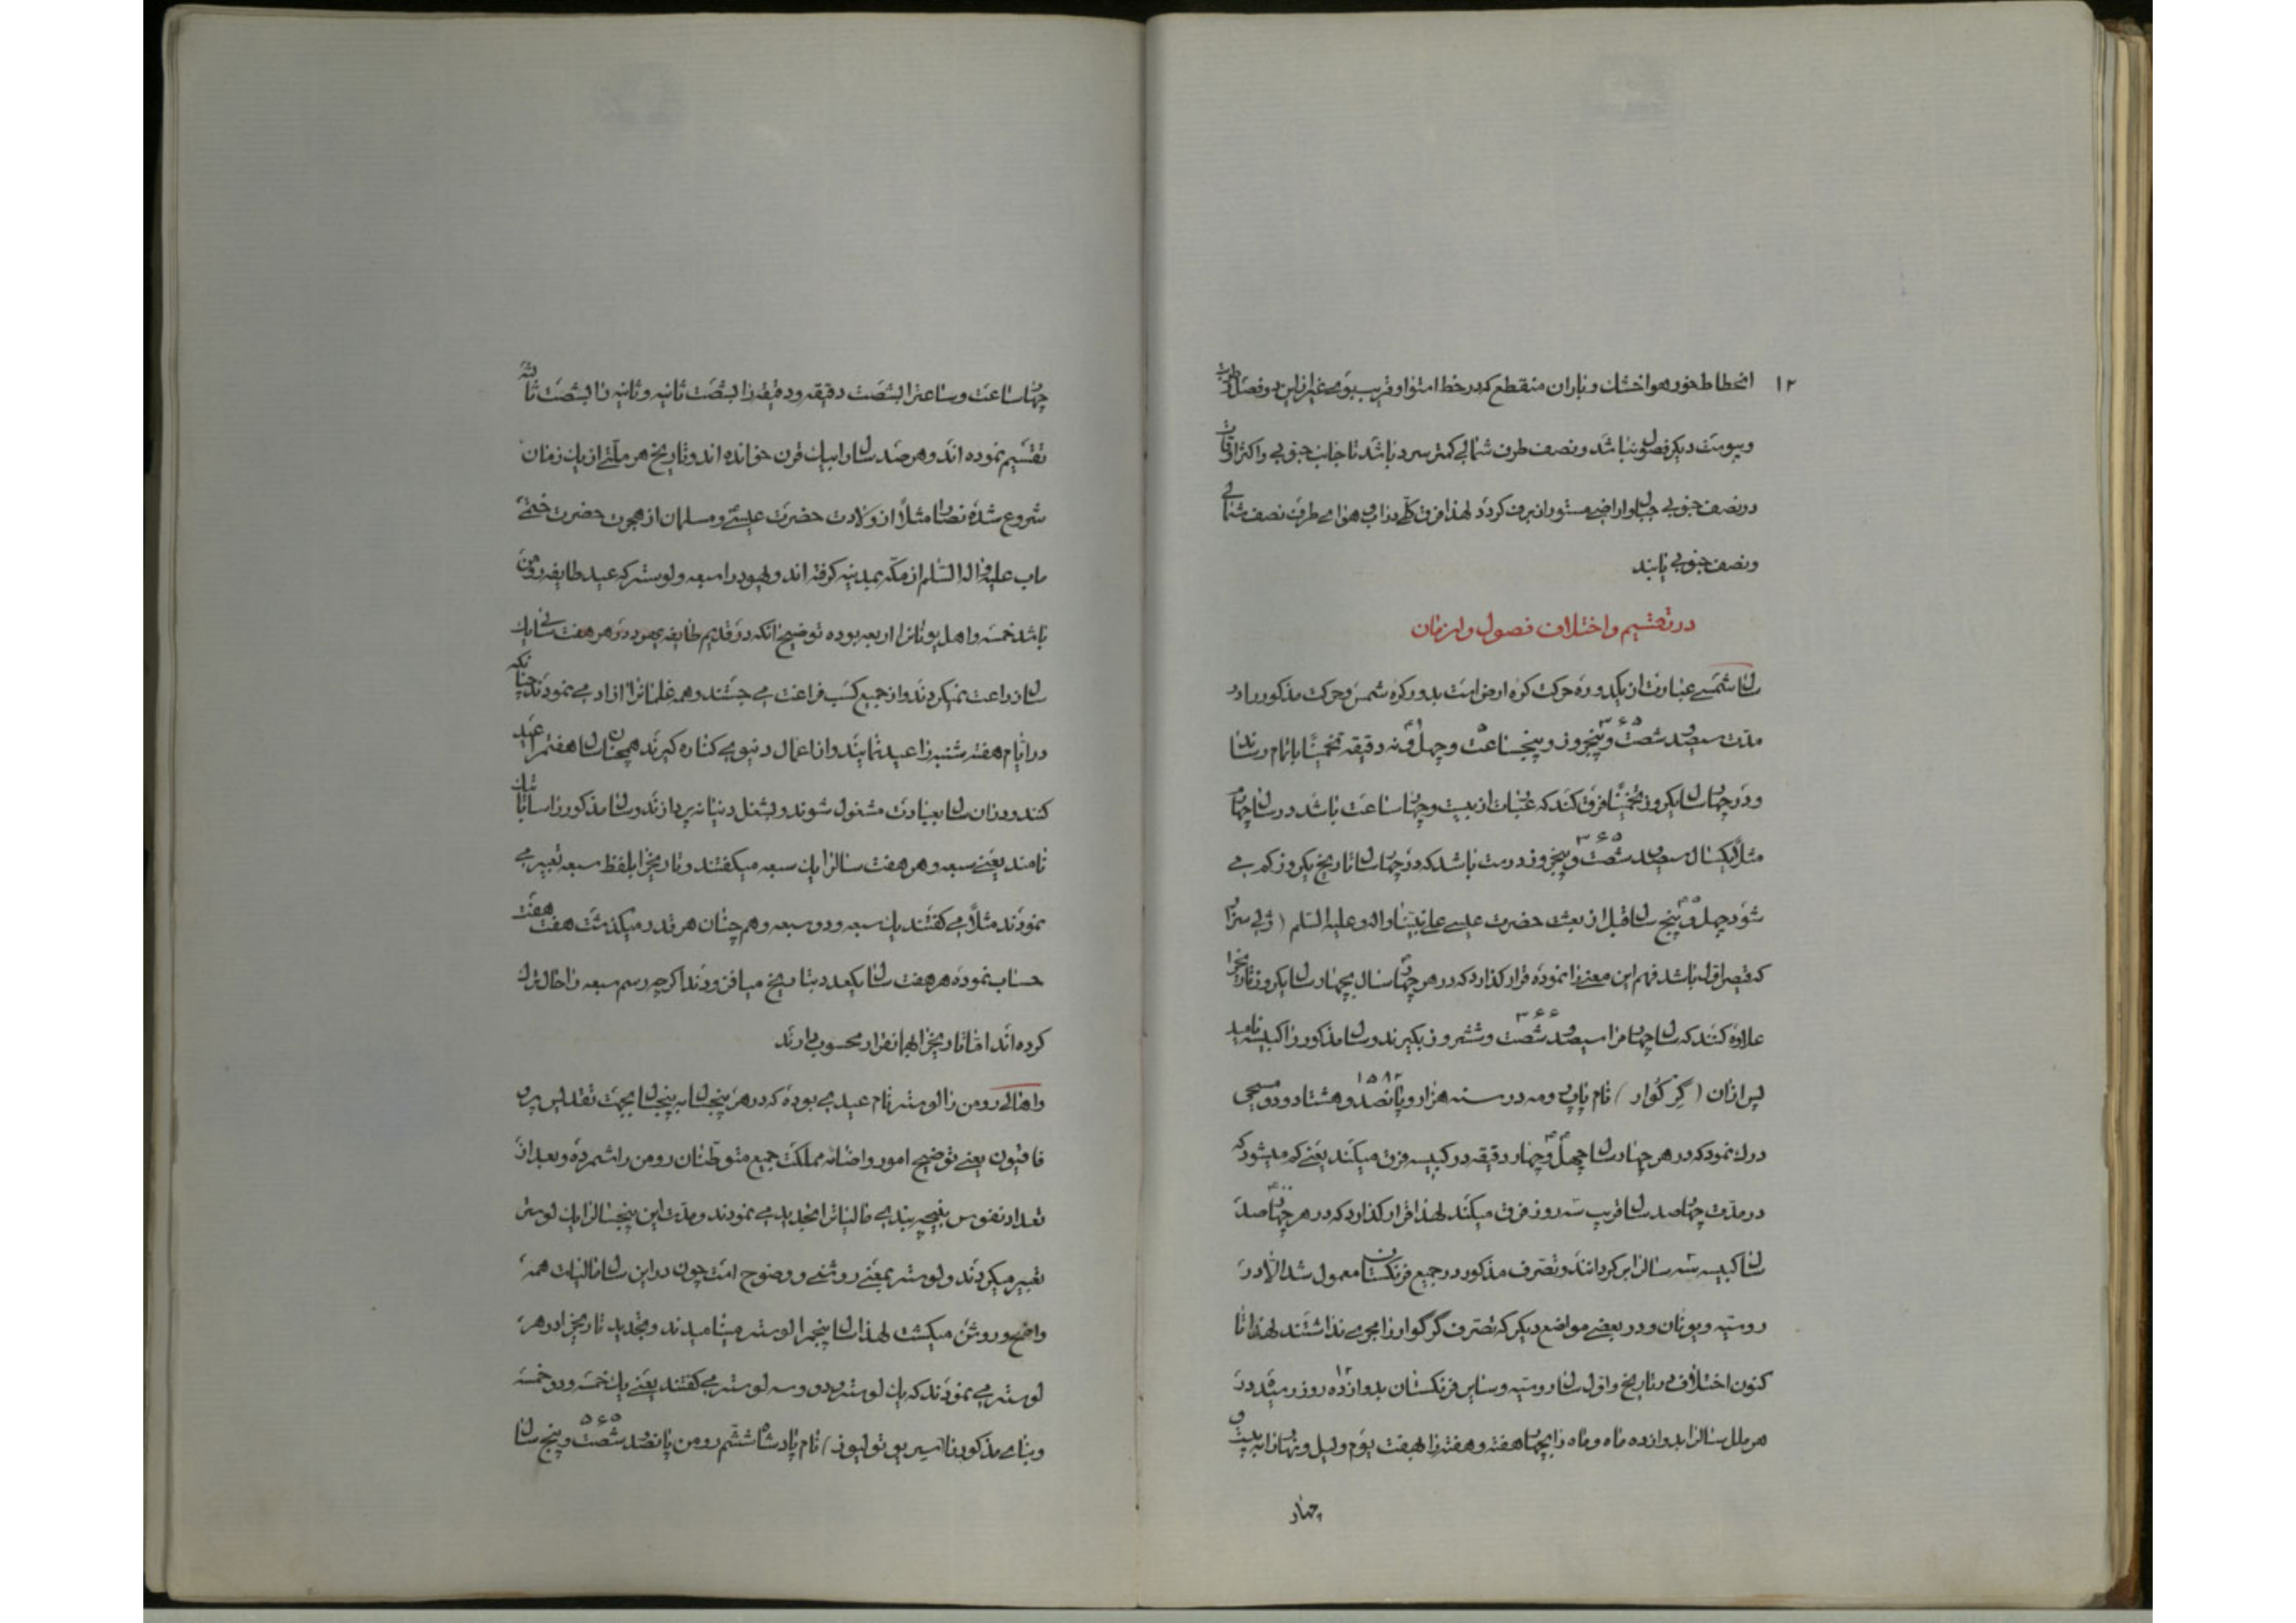 ۱۲
انحطاط خور هوا خشک و باران منقطع که در خط استوا و قریب بوی غیر از این دو فصل
و یبوست دیگر فصلی نباشد و نصف طرف شمالی کمتر سرد باشد تا جانب جنوبی و اکثر اوقات
در نصف جنوبی جبال و اراضی مستور از برف گردد لهذا فرق کلی در آب و هوای طرف نصف شمالی
و نصف جنوبی یابند
در تقسیم و اختلاف فصول و ازمان
سال شمسی عبارت از یکدوره حرکت کره ارض است بدور کره شمس و حرکت مذکور را در
مدت سیصد و شصت و پنجروز و پنجساعت و چهل و نه دقیقه تخمینا باتمام رساند
۳۶۵
و در چهار سال یکروز تخمینا فرق کند که عبارت از بیست و چهار ساعت باشد در سال چهارم
مثلا یکسال سیصد و شصت و پنجروز درست باشد که در چهار سال تاریخ یکروز کم می
۳۶۵
شود چهل و پنج سال قبل از بعثت حضرت عیسی علی نبینا و اله و علیه السلم (ژولی سزار)
که قیصر اول باشد فهم این معنی را نموده قرار گذارد که در هر چهار سال بچهار سال یکروز تاریخ را
علاوه کنند که سال چهارم را سیصد و شصت و ششروز بگیرند و سال مذکور را کبیسه نامید
۳۶۶
پس از آن (گرگوار) نام پاپ رمه در سنه هزار و پانصد و هشتاد و دو مسیحی
۱۵۸۲
درک نمود که در هر چهار سال چهل و چهار دقیقه در کبیسه فرق میکند یعنی کم میشود که
در مدت چهار صد سال قریب سه روز فرق میکند لهذا قرار گذارد که در هر چهار صد
سال کبیسه سه سال را بر گردانند و تصرف مذکور در جمیع فرنگستان معمول شد الا در
روسیه و یونان و در بعضی مواضع دیگر که تصرف گرگوار را مجری نداشتند لهذا تا
کنون اختلاف در تاریخ و اول سال روسیه و سایر فرنگستان بدوازده روز رسیده در
۱۲
هر ملل سال را بدوازده ماه و ماه را بچهار هفته و هفته را بهفت یوم و لیل و نهار را به بیست و
چهار
چهار ساعت و ساعت را بشصت دقیقه و دقیقه را بشصت ثانیه و ثانیه را بشصت ثالثه
تقسیم نموده اند و هر صد سال را بیک قرن خوانده اند و تاریخ هر ملتی از یک زمان
شروع شده نصارا مثلا از ولادت حضرت عیسی و مسلمان از هجرت حضرت ختمی
ماب علیه و اله السلام از مکه بمدینه گرفته اند و یهود را سبعه و لوستر که عید طایفه رومن
باشد خمسه و اهل یونان را اربعه بوده توضیح آنکه در قدیم طایفه یهود در هر هفت سالی یک
سال زراعت نمیکردند و از جمیع کسب فراغت می جستند و همه غلمانرا آزاد می نمودند چنانکه
در ایام هفته شنبه را عید نمایند و از اعمال دنیوی کناره گیرند همچنان سال هفتم را عید
کنند و در آن سال بعبادت مشغول شوند و بشغل دنیا نپردازند و سال مذکور را
نامند یعنی سبعه و هر هفت سال را یک سبعه میگفتند و تاریخ را بلفظ سبعه تعبیر می
نمودند مثلا می گفتند یک سبعه و دو سبعه و هم چنان هر قدر میگذشت هفت هفت
حساب نموده هر هفت سال یکعدد بتاریخ میافزودند اگرچه رسم سبعه را حال ترک
کرده اند اما تاریخ را بهمانقرار محسوب دارند
و اهالی رومن را لوستر نام عیدی بوده که در هر پنجسال به پنجسال بجهت تقدیس
قانون یعنی توضیح امور و اضافه مملکت جمیع متوطنان رومن را شمرده و بعد از
تعداد نفوس بنیچه بندی مالیاترا تجدید می نمودند و مدت این پنجسال را یک لوستر
تعبیر میکردند و لوستر بمعنی روشنی و وضوح است چون در این سال مالیات همه
واضح و روشن میگشت لهذا سال پنجم را لوستر مینامیدند و تجدید تاریخ را در هر
لوستر می نمودند که یک لوستر و دو و سه لوستر می گفتند یعنی یک خمسه و دو خمسه
و بنای مذکور را (سیر یو تولیوز) نام پادشاه ششم رومن پانصد و شصت و پنج سال
۵۶۵